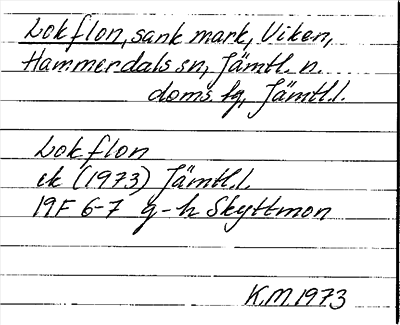 Lokflon, sank mark, Viken,
Hammerdals sn, Jämtl. n.
doms. fg, Jämtl.l.
Lokflon
ek (1973) Jämtl.l.
19F 6-7 g-h Skyttmon
K.M. 1973